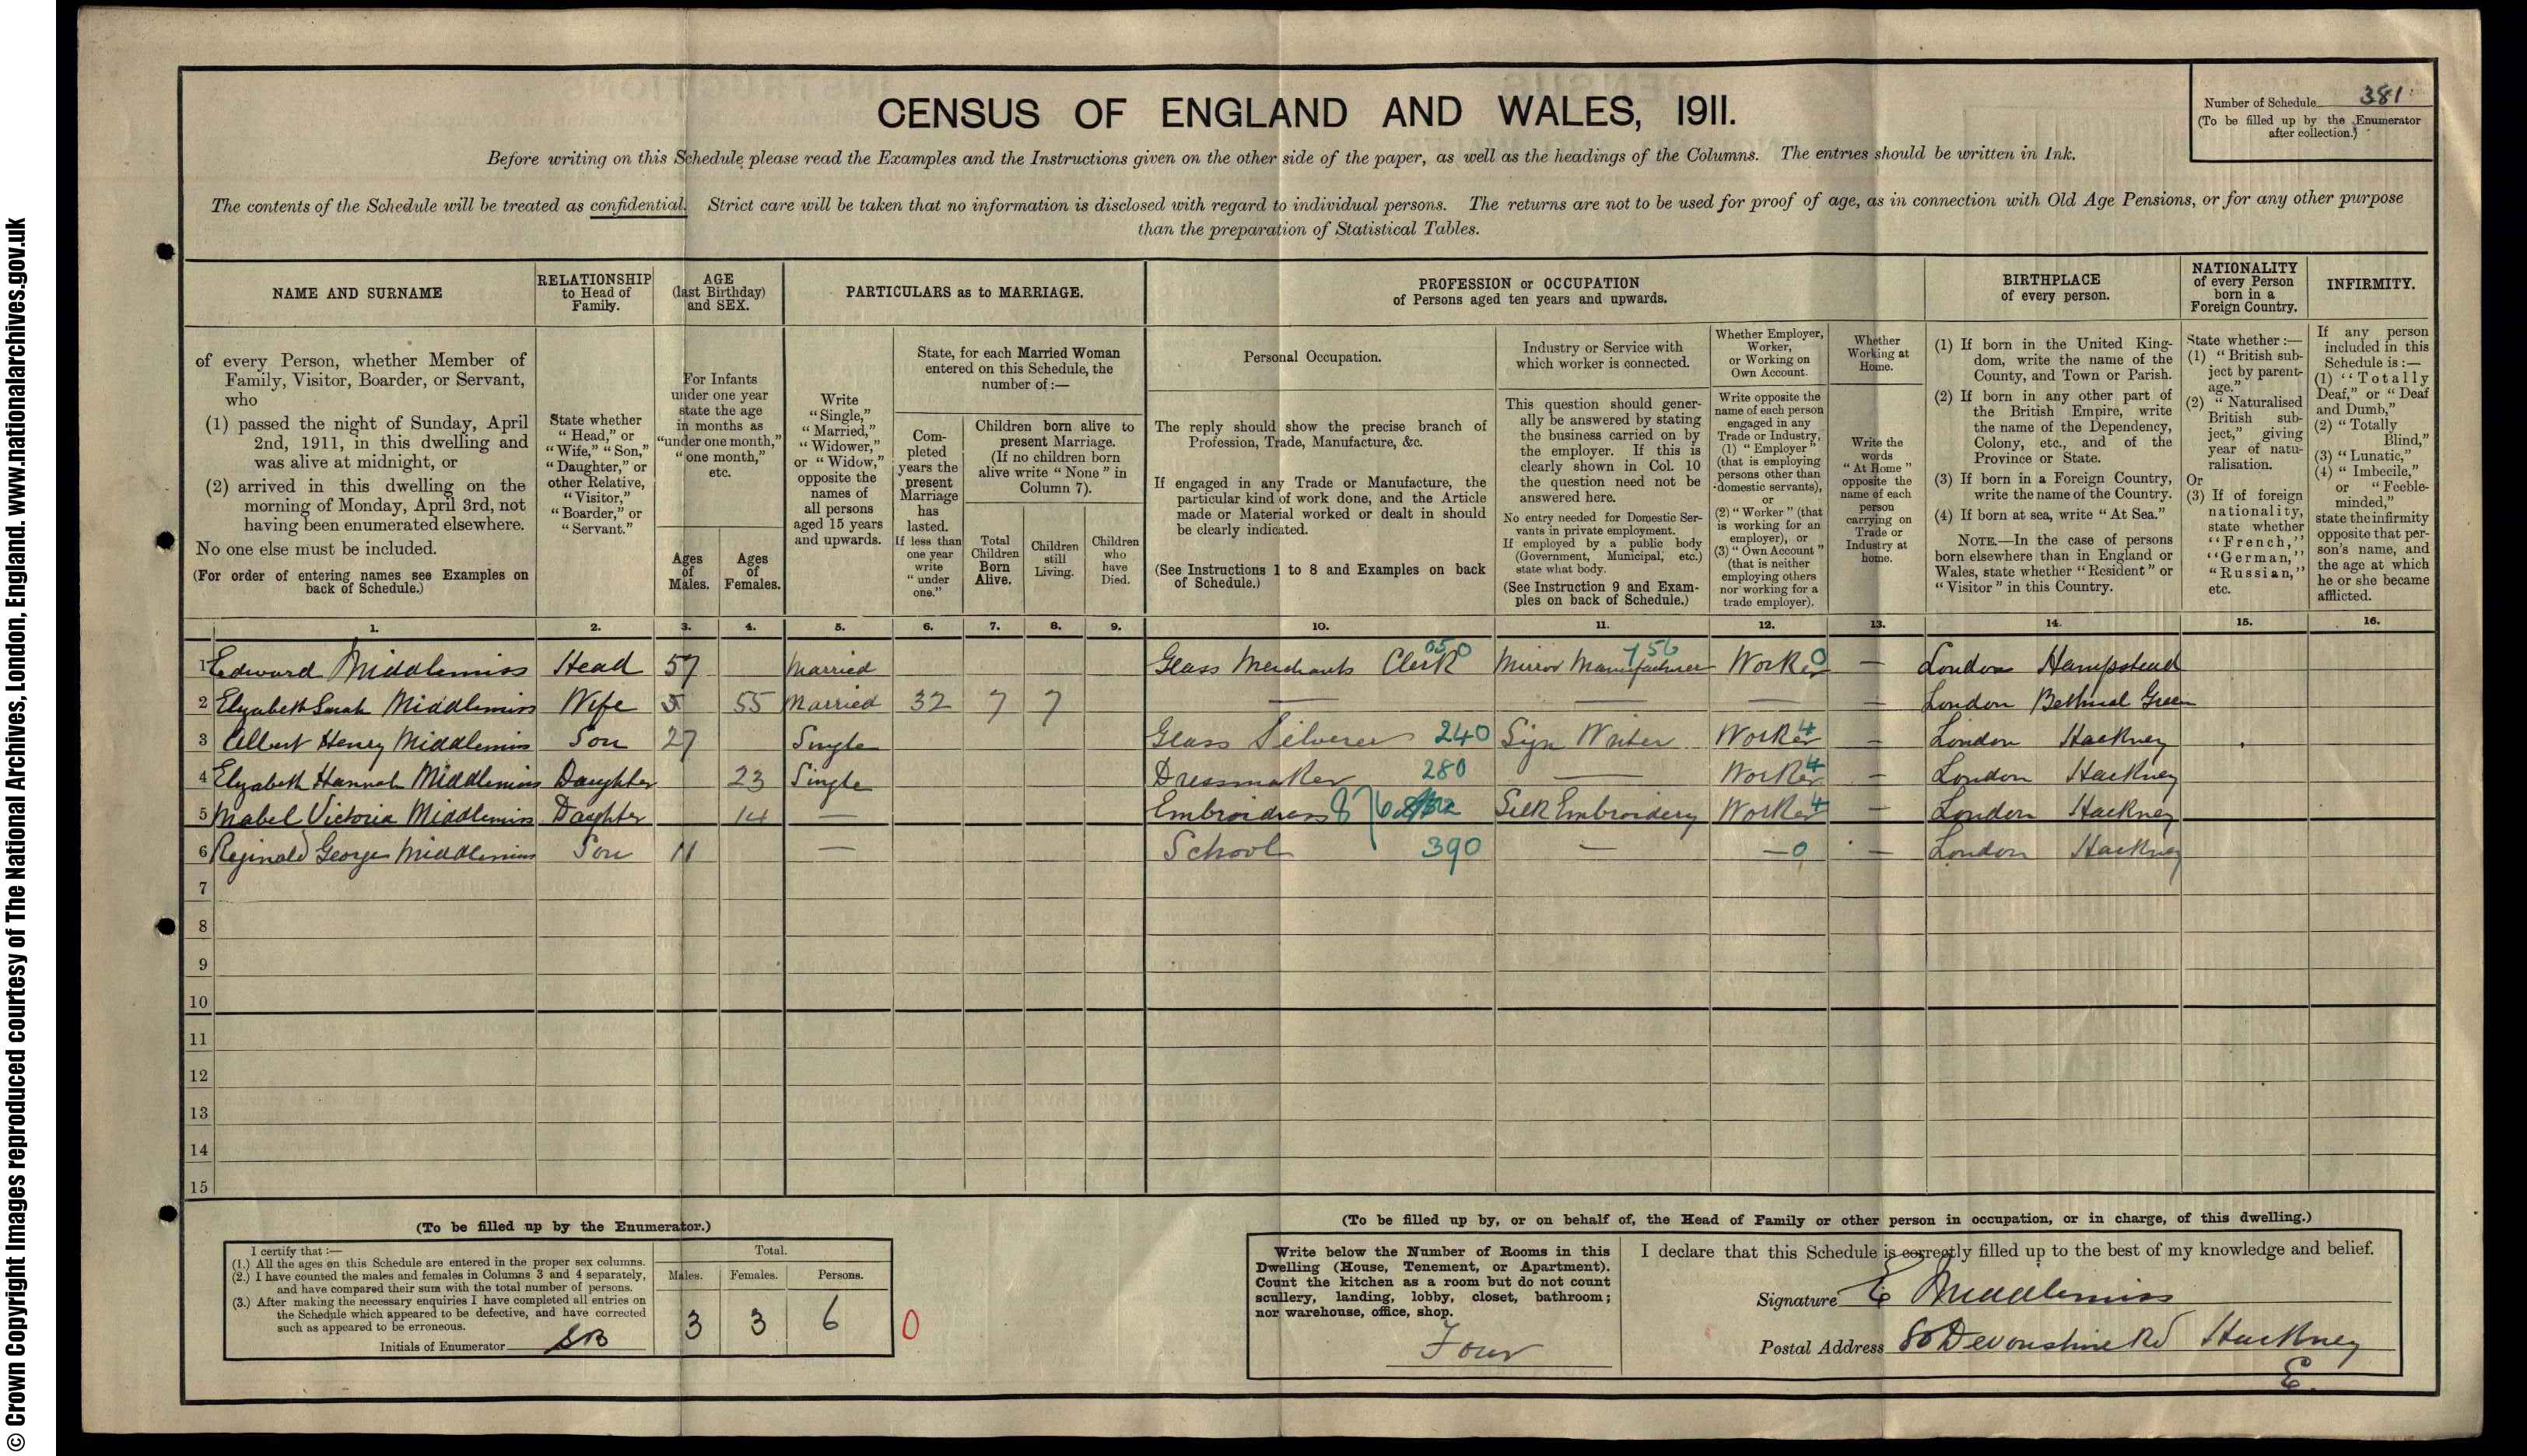 CENSUS OF ENGLAND AND WALES, 1911.
Number of Schedule 381
(To be filled up by the Enumerator
after collection.)
Before writing on this Schedule please read the Examples and the Instructions given on the other side of the paper, as well as the headings of the Columns. The entries should be written in Ink.
The contents of the Schedule will be treated as confidential. Strict care will be taken that no information is disclosed with regard to individual persons. The returns are not to be used for proof of age, as in connection with Old Age Pensions, or for any other purpose
than the preparation of Statistical Tables.
NAME AND SURNAME
of every Person, whether Member of
Family, Visitor, Boarder, or Servant,
who
(1) passed the night of Sunday, April
2nd, 1911, in this dwelling and
was alive at midnight, or
(2) arrived in this dwelling on the
morning of Monday, April 3rd, not
having been enumerated elsewhere.
No one else must be included.
(For order of entering names see Examples on
back of Schedule.)
RELATIONSHIP
to Head of
Family.
State whether
"Head," or
"Wife," "Son,"
"Daughter," or
other Relative,
"Visitor,"
"Boarder," or
"Servant."
AGE
(last Birthday)
and SEX.
For Infants
under one year
state the age
in months as
"under one month,"
"one month,"
etc.
Ages
of
Males.
Ages
of
Females.
PARTICULARS as to MARRIAGE.
Write
"Single,"
"Married,"
"Widower,"
or "Widow,"
opposite the
names of
all persons
aged 15 years
and upwards.
State, for each Married Woman
entered on this Schedule, the
number of:—
Com-
pleted
years the
present
Marriage
has
lasted.
If less than
one year
write
"under
one."
Children born alive to
present Marriage.
(If no children born
alive write "None" in
Column 7).
Total
Children
Born
Alive.
Children
still
Living.
Children
who
have
Died.
PROFESSION or OCCUPATION
of Persons aged ten years and upwards.
Personal Occupation.
The reply should show the precise branch of
Profession, Trade, Manufacture, &c.
If engaged in any Trade or Manufacture, the
particular kind of work done, and the Article
made or Material worked or dealt in should
be clearly indicated.
(See Instructions 1 to 8 and Examples on back
of Schedule.)
Industry or Service with
which worker is connected.
This question should gener-
ally be answered by stating
the business carried on by
the employer. If this is
clearly shown in Col. 10
the question need not be
answered here.
No entry needed for Domestic Ser-
vants in private employment.
If employed by a public body
(Government, Municipal, etc.)
state what body.
(See Instruction 9 and Exam-
ples on back of Schedule.)
Whether Employer,
Worker,
or Working on
Own Account.
Write opposite the
name of each person
engaged in any
Trade or Industry,
(1) "Employer"
(that is employing
persons other than
domestic servants),
or
(2) "Worker" (that
is working for an
employer), or
(3) "Own Account"
(that is neither
employing others
nor working for a
trade employer).
Whether
Working at
Home.
Write the
words
"At Home"
opposite the
name of each
person
carrying on
Trade or
Industry at
home.
BIRTHPLACE
of every person.
(1) If born in the United King-
dom, write the name of the
County, and Town or Parish.
(2) If born in any other part of
the British Empire, write
the name of the Dependency,
Colony, etc., and of the
Province or State.
(3) If born in a Foreign Country,
write the name of the Country.
(4) If born at sea, write "At Sea."
NOTE.—In the case of persons
born elsewhere than in England or
Wales, state whether "Resident" or
"Visitor" in this Country.
NATIONALITY
of every Person
born in a
Foreign Country.
State whether:—
(1) "British sub-
ject by parent-
age,"
(2) "Naturalised
British sub-
ject," giving
year of natu-
ralisation.
Or
(3) If of foreign
nationality,
state whether
"French,"
"German,"
"Russian,"
etc.
INFIRMITY.
If any person
included in this
Schedule is:—
(1) "Totally
Deaf," or "Deaf
and Dumb,"
(2) "Totally
Blind,"
(3) "Lunatic,"
(4) "Imbecile,"
or "Feeble-
minded,"
state the infirmity
opposite that per-
son's name, and
the age at which
he or she became
afflicted.
1. 2. 3. 4. 5. 6. 7. 8. 9. 10. 11. 12. 13. 14. 15. 16.
1 Edward Middlemiss Head 57 Married Glass Merchants Clerk 050 Mirror Manufacturer 756 Worker 0 — London Hampstead
2 Elizabeth Sarah Middlemiss Wife 55 Married 32 7 7 — — — — London Bethnal Green
3 Albert Henry Middlemiss Son 27 Single Glass Silverer 240 Sign Writer Worker 4 — London Hackney
4 Elizabeth Hannah Middlemiss Daughter 23 Single Dressmaker 280 — Worker 4 — London Hackney
5 Mabel Victoria Middlemiss Daughter 14 — Embroidress Silk Embroidery Worker 4 — London Hackney
6 Reginald George Middlemiss Son 11 — School 390 — — 0 — London Hackney
7
8
9
10
11
12
13
14
15
(To be filled up by the Enumerator.)
I certify that:—
(1.) All the ages on this Schedule are entered in the proper sex columns.
(2.) I have counted the males and females in Columns 3 and 4 separately,
and have compared their sum with the total number of persons.
(3.) After making the necessary enquiries I have completed all entries on
the Schedule which appeared to be defective, and have corrected
such as appeared to be erroneous.
Initials of Enumerator
Total.
Males. Females. Persons.
3 3 6 0
(To be filled up by, or on behalf of, the Head of Family or other person in occupation, or in charge, of this dwelling.)
Write below the Number of Rooms in this
Dwelling (House, Tenement, or Apartment).
Count the kitchen as a room but do not count
scullery, landing, lobby, closet, bathroom;
nor warehouse, office, shop.
Four
I declare that this Schedule is correctly filled up to the best of my knowledge and belief.
Signature E Middlemiss
Postal Address 80 Devonshire Rd Hackney
E.
© Crown Copyright Images reproduced courtesy of The National Archives, London, England. www.nationalarchives.gov.uk